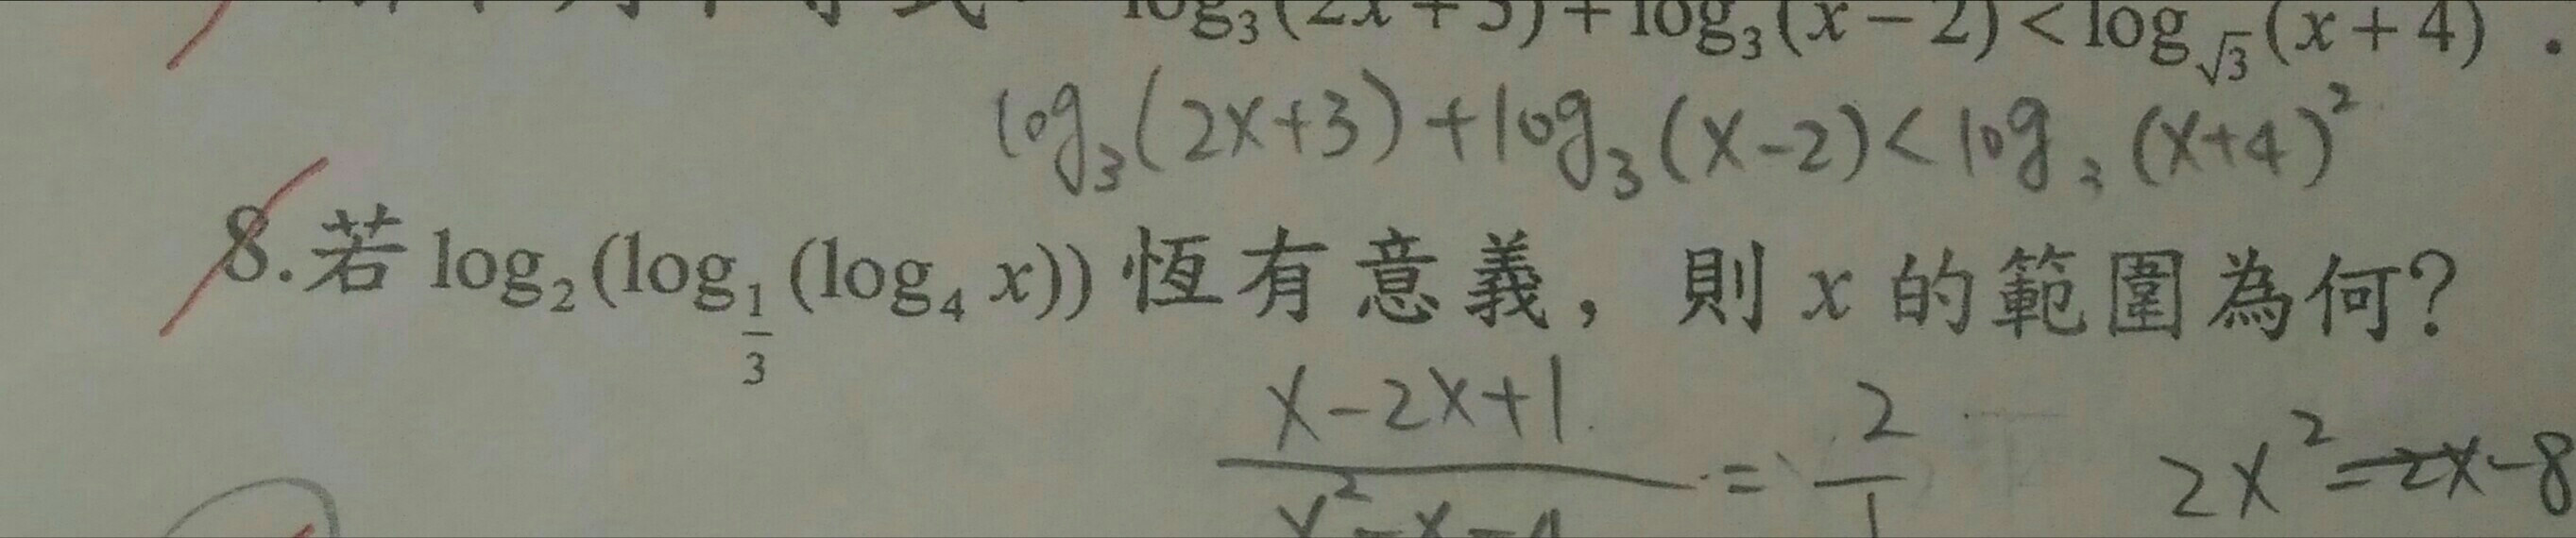 log₃(2x+3)+log₃(x−2)<log_{√3}(x+4).
log₃(2x+3)+log₃(x-2)<log₃(x+4)²
8.若 log₂(log_{1/3}(log₄ x)) 恆有意義，則 x 的範圍為何？
x-2x+1 / x²-x-4 = 2/1 2x²=2x-8